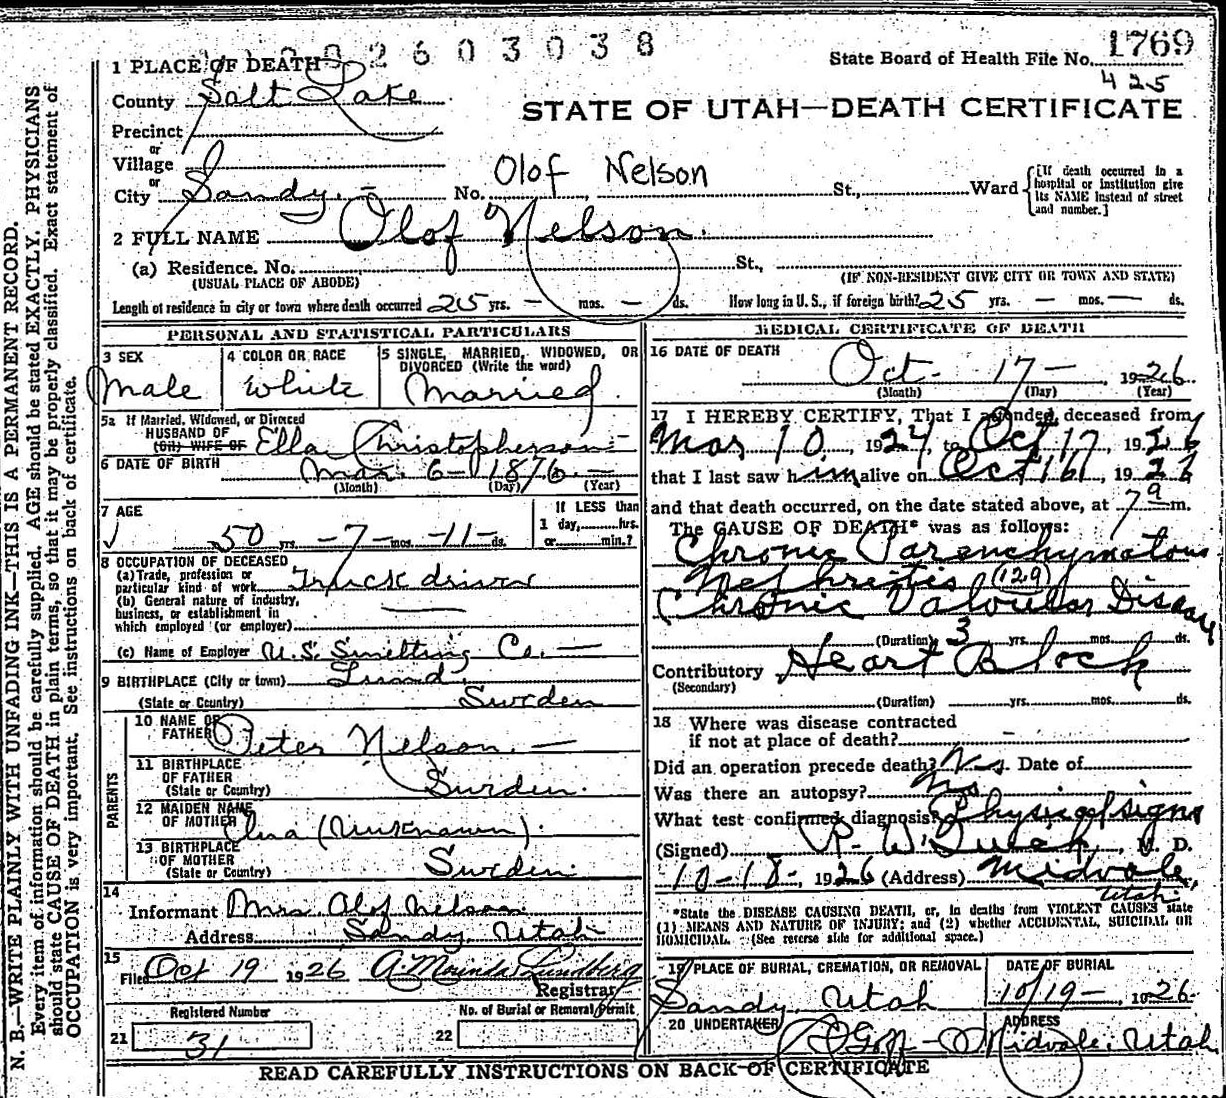 2603038
1769
State Board of Health File No.
425
STATE OF UTAH—DEATH CERTIFICATE
1 PLACE OF DEATH
County Salt Lake
Precinct
or
Village
or
City Sandy. No. Olof Nelson St., Ward
[If death occurred in a hospital or institution give its NAME instead of street and number.]
2 FULL NAME Olof Nelson.
(a) Residence. No. St.,
(USUAL PLACE OF ABODE) (IF NON-RESIDENT GIVE CITY OR TOWN AND STATE)
Length of residence in city or town where death occurred 25 yrs. — mos. — ds. How long in U. S., if foreign birth? 25 yrs. — mos. — ds.
PERSONAL AND STATISTICAL PARTICULARS
3 SEX
Male
4 COLOR OR RACE
White
5 SINGLE, MARRIED, WIDOWED, OR DIVORCED (Write the word)
Married.
5a If Married, Widowed, or Divorced
HUSBAND OF
(Or) WIFE OF Ella Christopherson
6 DATE OF BIRTH Mar. 6 - 1876 —
(Month) (Day) (Year)
7 AGE
50 yrs. - 7 - mos. - 11 - ds.
If LESS than
1 day, hrs.
or min.?
8 OCCUPATION OF DECEASED
(a) Trade, profession or
particular kind of work Truck driver
(b) General nature of industry,
business, or establishment in
which employed (or employer)
(c) Name of Employer U.S. Smelting Co. —
9 BIRTHPLACE (City or town) Lund.
(State or Country) Sweden
PARENTS
10 NAME OF
FATHER Peter Nelson. —
11 BIRTHPLACE
OF FATHER
(State or Country) Sweden.
12 MAIDEN NAME
OF MOTHER (Unknown).
13 BIRTHPLACE
OF MOTHER
(State or Country) Sweden
14
Informant Mrs. Olof Nelson
Address Sandy, Utah
15
Filed Oct 19 1926 Lundberg
Registrar
Registered Number
21 31
No. of Burial or Removal Permit
22
MEDICAL CERTIFICATE OF DEATH
16 DATE OF DEATH
Oct - 17 - , 1926
(Month) (Day) (Year)
17 I HEREBY CERTIFY, That I attended deceased from
Mar 10, 1924, to Oct 17, 1926
that I last saw him alive on Oct 16, 1926
and that death occurred, on the date stated above, at 7 a m.
The CAUSE OF DEATH* was as follows:
Chronic Parenchymatous
Nephritis (129)
Chronic Valvular Disease
(Duration) 3 yrs. mos. ds.
Contributory Heart Block
(Secondary)
(Duration) yrs. mos. ds.
18 Where was disease contracted
if not at place of death? -
Did an operation precede death? No. Date of
Was there an autopsy? No
What test confirmed diagnosis? Physical signs
(Signed) R. W. Quick, M. D.
10-18-, 1926 (Address) Midvale,
Utah
*State the DISEASE CAUSING DEATH, or, in deaths from VIOLENT CAUSES state
(1) MEANS AND NATURE OF INJURY; and (2) whether ACCIDENTAL, SUICIDAL OR
HOMICIDAL. (See reverse side for additional space.)
19 PLACE OF BURIAL, CREMATION, OR REMOVAL
Sandy Utah
DATE OF BURIAL
10/19 - , 1926
20 UNDERTAKER
Goff -
ADDRESS
Midvale, Utah
READ CAREFULLY INSTRUCTIONS ON BACK OF CERTIFICATE
N. B.—WRITE PLAINLY WITH UNFADING INK—THIS IS A PERMANENT RECORD.
Every item of information should be carefully supplied. AGE should be stated EXACTLY. PHYSICIANS
should state CAUSE OF DEATH in plain terms, so that it may be properly classified. Exact statement of
OCCUPATION is very important. See instructions on back of certificate.